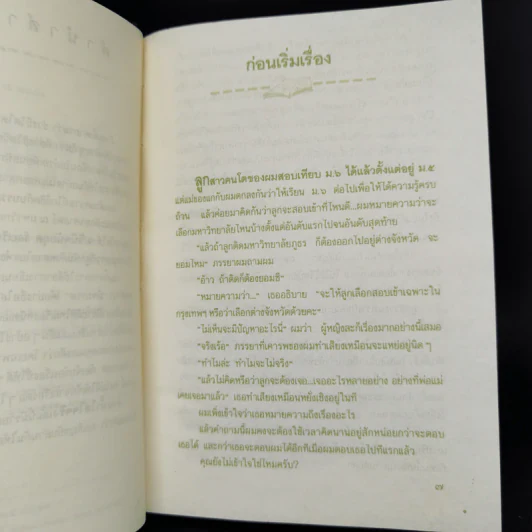 ก่อนเริ่มเรื่อง
ลูกสาวคนโตของผมสอบเทียบ ม.๖ ได้แล้วตั้งแต่อยู่ ม.๕
แต่แม่ของแกกับผมตกลงกันว่าให้เรียน ม.๖ ต่อไปเพื่อให้ได้ความรู้ครบ
ถ้วน แล้วค่อยมาคิดกันว่าลูกจะสอบเข้าที่ไหนดี...ผมหมายความว่าจะ
เลือกมหาวิทยาลัยไหนบ้างตั้งแต่อันดับแรกไปจนอันดับสุดท้าย
"แล้วถ้าลูกติดมหาวิทยาลัยภูธร ก็ต้องออกไปอยู่ต่างจังหวัด จะ
ยอมไหม" ภรรยาผมถามผม
"อ้าว ถ้าติดก็ต้องยอมซี"
"หมายความว่า..." เธออธิบาย "จะให้ลูกเลือกสอบเข้าเฉพาะใน
กรุงเทพฯ หรือว่าเลือกต่างจังหวัดด้วยคะ"
"ไม่เห็นจะมีปัญหาอะไรนี่" ผมว่า ผู้หญิงละก็เรื่องมากอย่างนี้เสมอ
"จริงเร้อ" ภรรยาที่เคารพของผมทำเสียงเหมือนจะแหย่อยู่นิด ๆ
"ทำไมล่ะ ทำไมจะไม่จริง"
"แล้วไม่คิดหรือว่าลูกจะต้องเจอ...เจออะไรหลายอย่าง อย่างที่พ่อแม่
เคยเจอมาแล้ว" เธอทำเสียงเหมือนหยั่งเชิงอยู่ในที
ผมเพิ่งเข้าใจว่าเธอหมายความถึงเรื่องอะไร
แล้วคำถามนี้ผมคงจะต้องใช้เวลาคิดนานอยู่สักหน่อยกว่าจะตอบ
เธอได้ และกว่าเธอจะตอบผมได้อีกทีเมื่อผมตอบเธอไปทีแรกแล้ว
คุณยังไม่เข้าใจใช่ไหมครับ?
๗